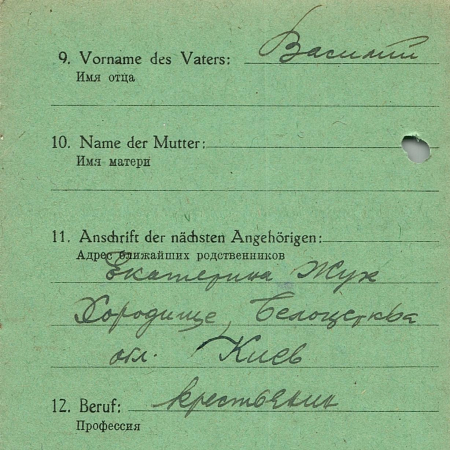 9. Vorname des Vaters: Василий
Имя отца
10. Name der Mutter:
Имя матери
11. Anschrift der nächsten Angehörigen:
Адрес ближайших родственников
Екатерина Жук
Хородище, Белоцерква
обл. Киев
12. Beruf: крестьянин
Профессия